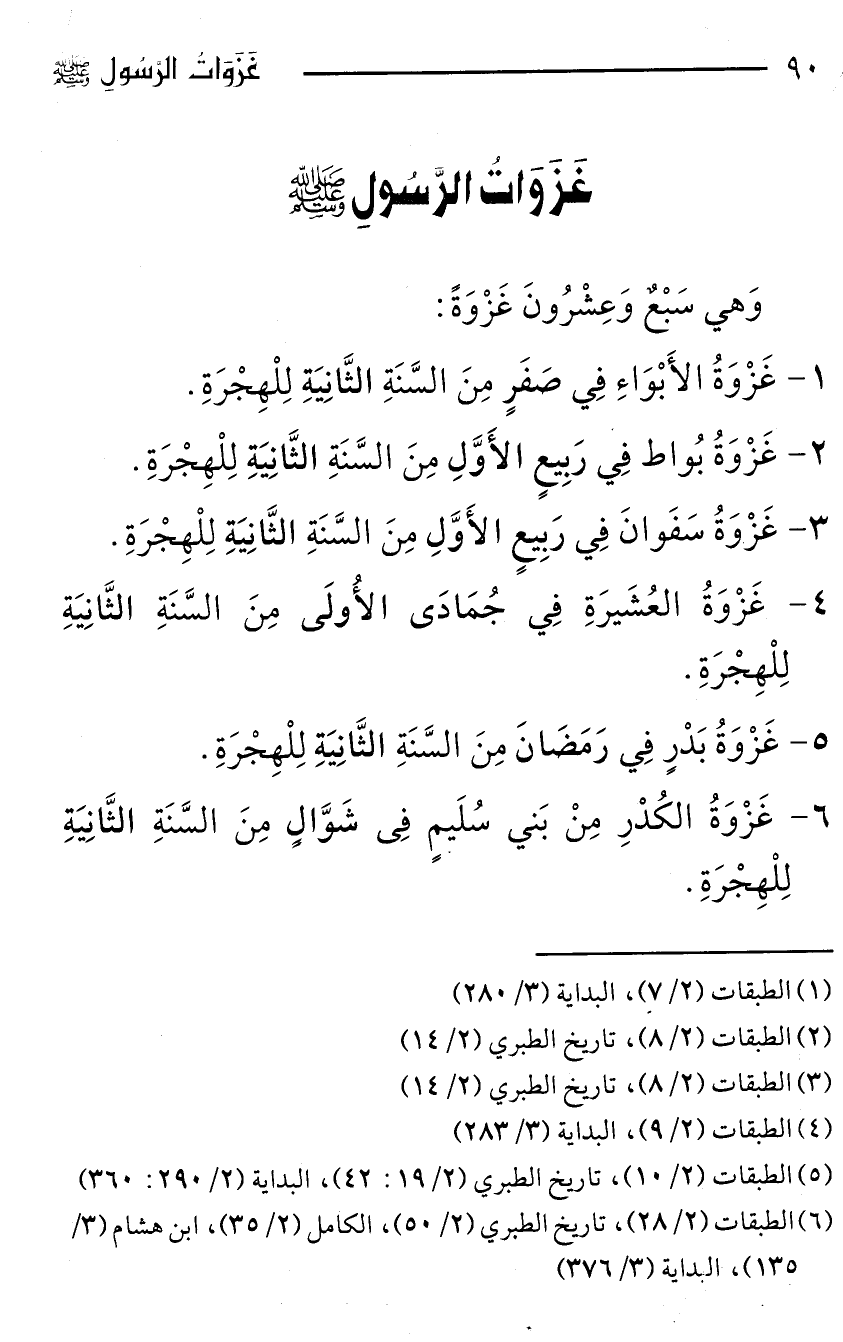 ٩٠ غَزَوَاتُ الرَّسُولِ ﷺ
غَزَوَاتُ الرَّسُولِ ﷺ
وَهي سَبْعٌ وَعِشْرُونَ غَزْوَةً:
١- غَزْوَةُ الأَبْوَاءِ فِي صَفَرٍ مِنَ السَّنَةِ الثَّانِيَةِ لِلْهِجْرَةِ.
٢- غَزْوَةُ بُواط فِي رَبِيعٍ الأَوَّلِ مِنَ السَّنَةِ الثَّانِيَةِ لِلْهِجْرَةِ.
٣- غَزْوَةُ سَفَوانَ فِي رَبِيعٍ الأَوَّلِ مِنَ السَّنَةِ الثَّانِيَةِ لِلْهِجْرَةِ.
٤- غَزْوَةُ العُشَيرَةِ فِي جُمَادَى الأُولَى مِنَ السَّنَةِ الثَّانِيَةِ
لِلْهِجْرَةِ.
٥- غَزْوَةُ بَدْرٍ فِي رَمَضَانَ مِنَ السَّنَةِ الثَّانِيَةِ لِلْهِجْرَةِ.
٦- غَزْوَةُ الكُدْرِ مِنْ بَني سُلَيمٍ فِى شَوَّالٍ مِنَ السَّنَةِ الثَّانِيَةِ
لِلْهِجْرَةِ.
(١) الطبقات (٢/ ٧)، البداية (٣/ ٢٨٠)
(٢) الطبقات (٢/ ٨)، تاريخ الطبري (٢/ ١٤)
(٣) الطبقات (٢/ ٨)، تاريخ الطبري (٢/ ١٤)
(٤) الطبقات (٢/ ٩)، البداية (٣/ ٢٨٣)
(٥) الطبقات (٢/ ١٠)، تاريخ الطبري (٢/ ١٩ : ٤٢)، البداية (٢/ ٢٩٠ : ٣٦٠)
(٦) الطبقات (٢/ ٢٨)، تاريخ الطبري (٢/ ٥٠)، الكامل (٢/ ٣٥)، ابن هشام (٣/
١٣٥)، البداية (٣/ ٣٧٦)